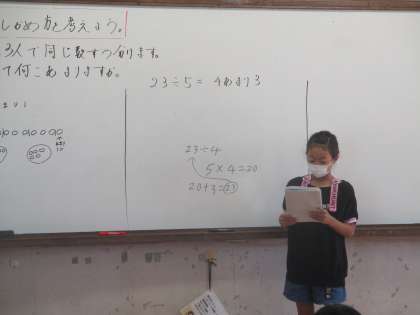 しかめ方を考えよう。
3人で同じ数ずつ分けます。
て何こあまりますか。
23÷5＝4あまり3
23÷4
5×4=20
20+3=23